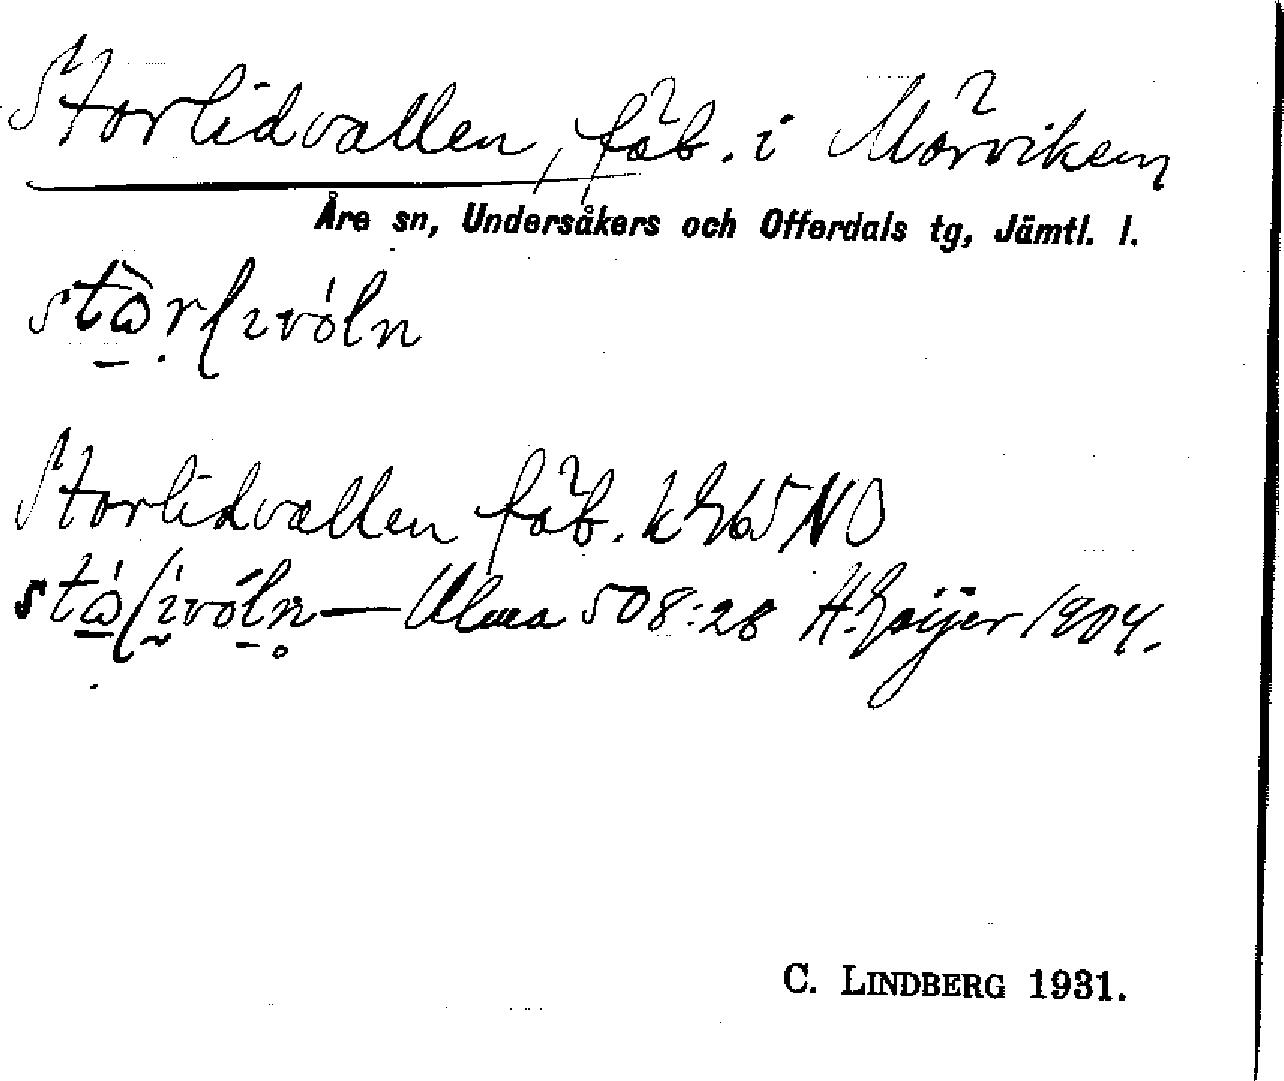 Storlidvallen, fäb. i Mörviken
Åre sn, Undersåkers och Offerdals tg, Jämtl. l.
Storlidvallen fäb. k 265 NO
— Ulma 508:28 H. Geijer 1904.
C. LINDBERG 1931.